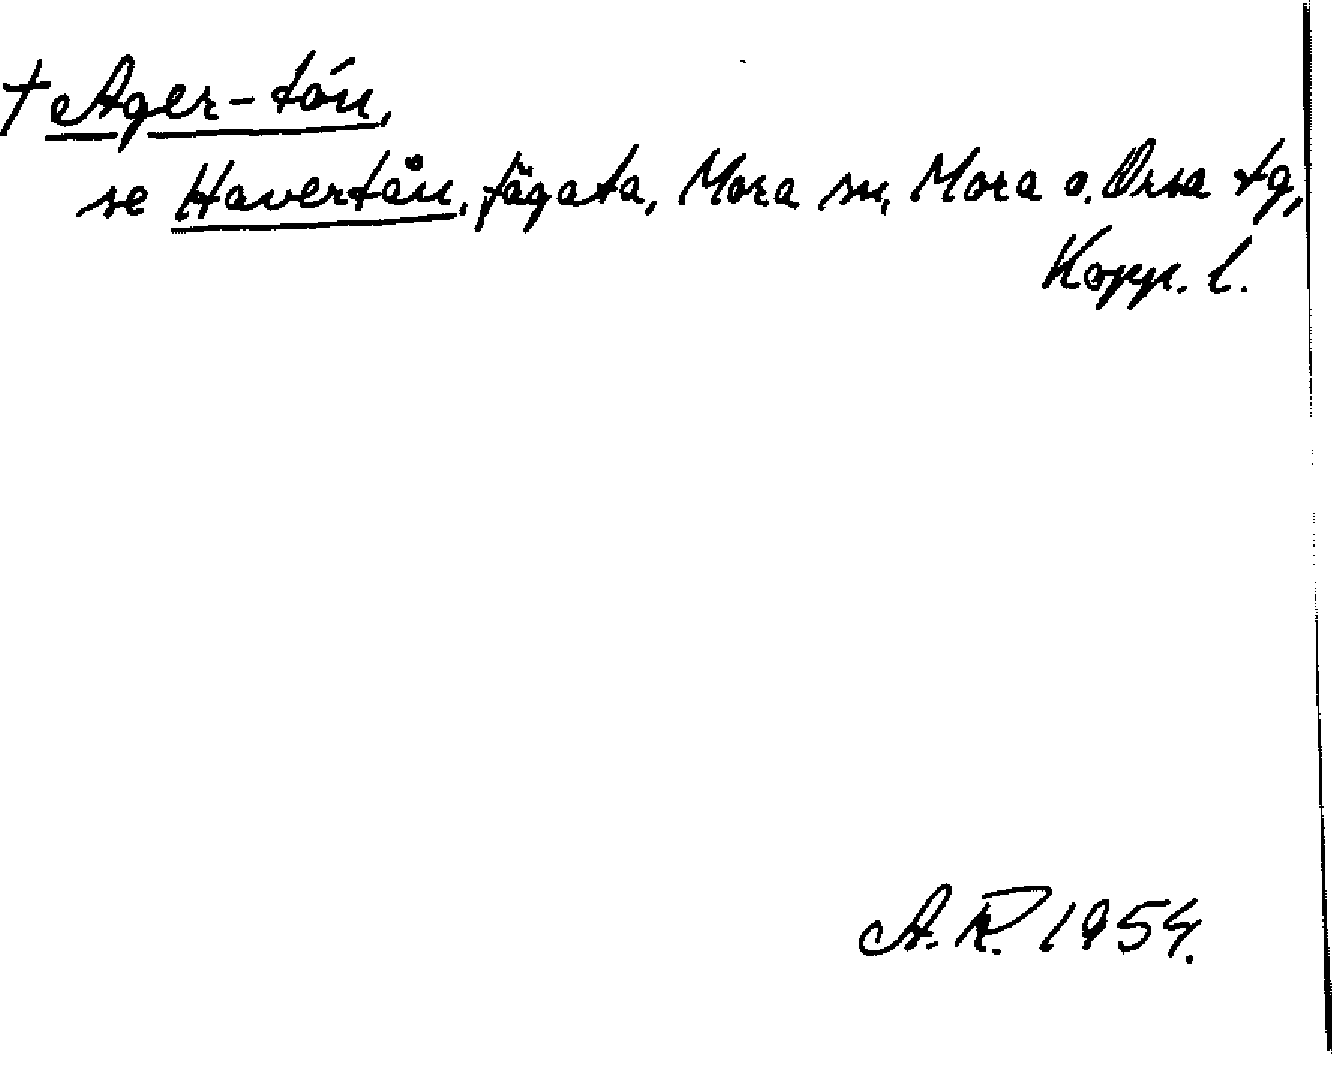 † Ager-tón,
se Havertån, fägata, Mora sn, Mora o. Orsa tg,
Kopp. l.
A.R. 1954.